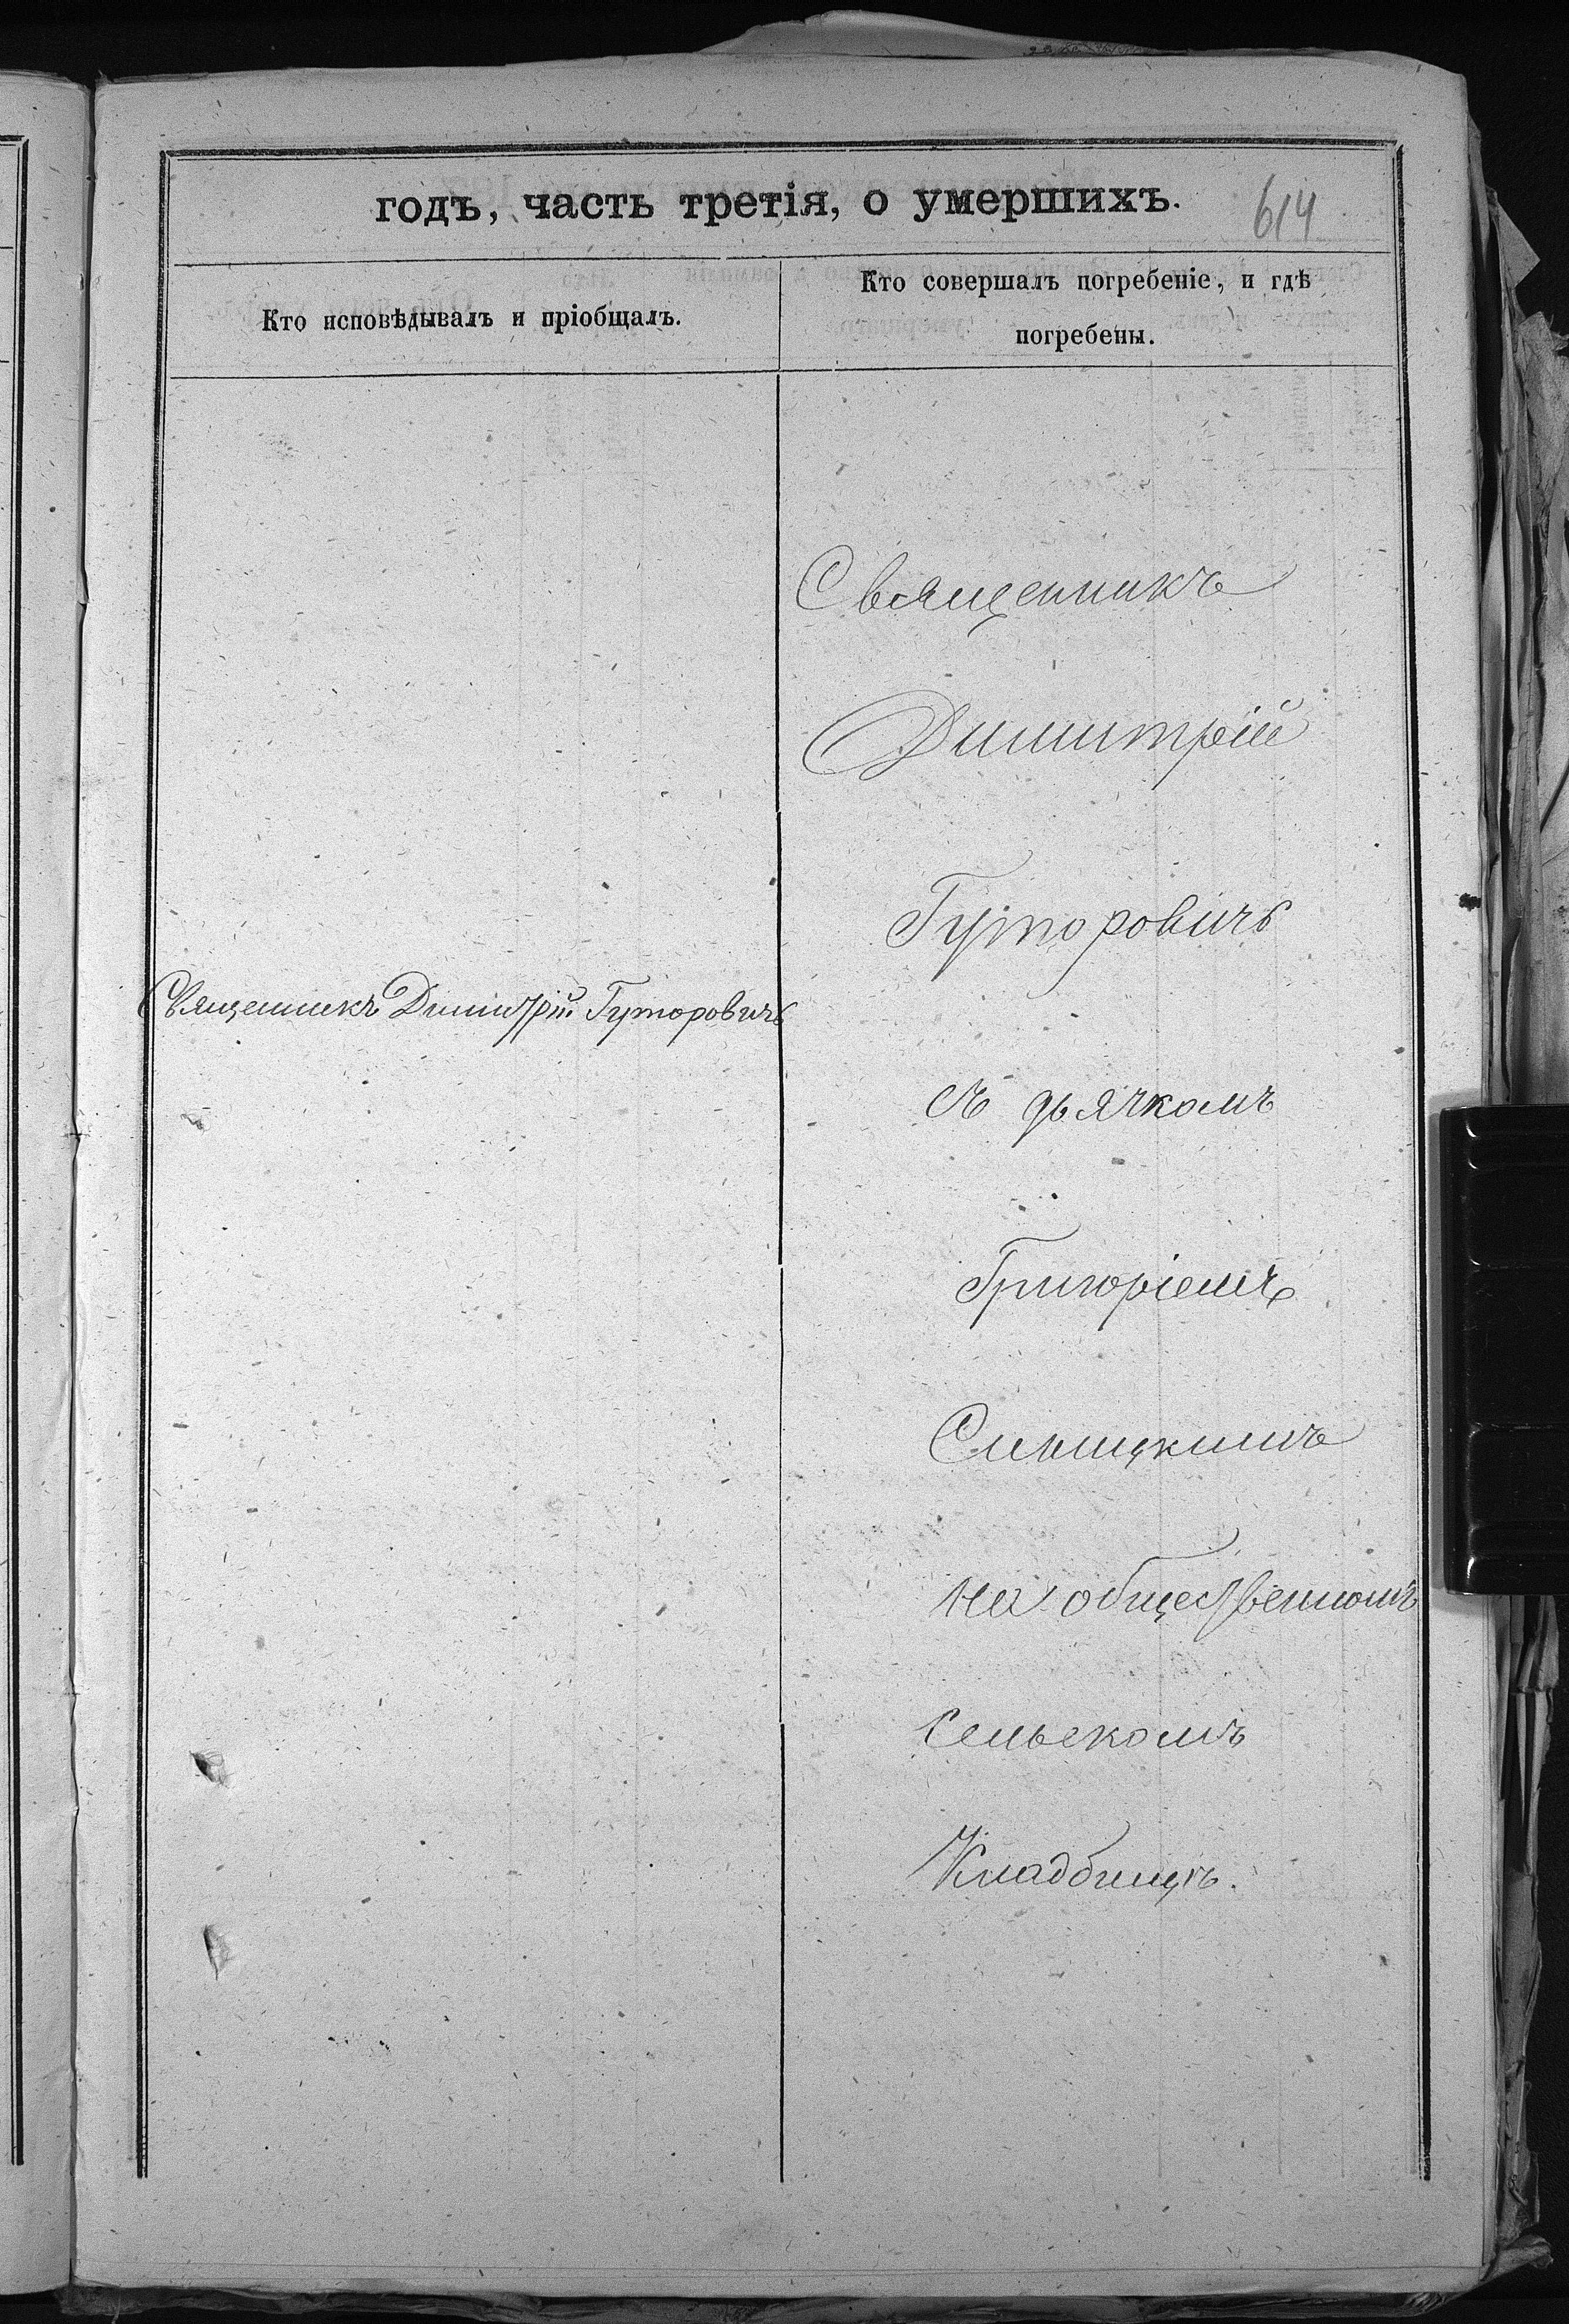 годъ, часть третія, о умершихъ.
614
Кто исповѣдывалъ и пріобщалъ.
Кто совершалъ погребеніе, и гдѣ
погребены.
Священникъ Димитрій Гуторовичъ
Священникъ
Димитрій
Гуторовичъ
съ дьячкомъ
Григоріемъ
на общественномъ
сельскомъ
Кладбищѣ.